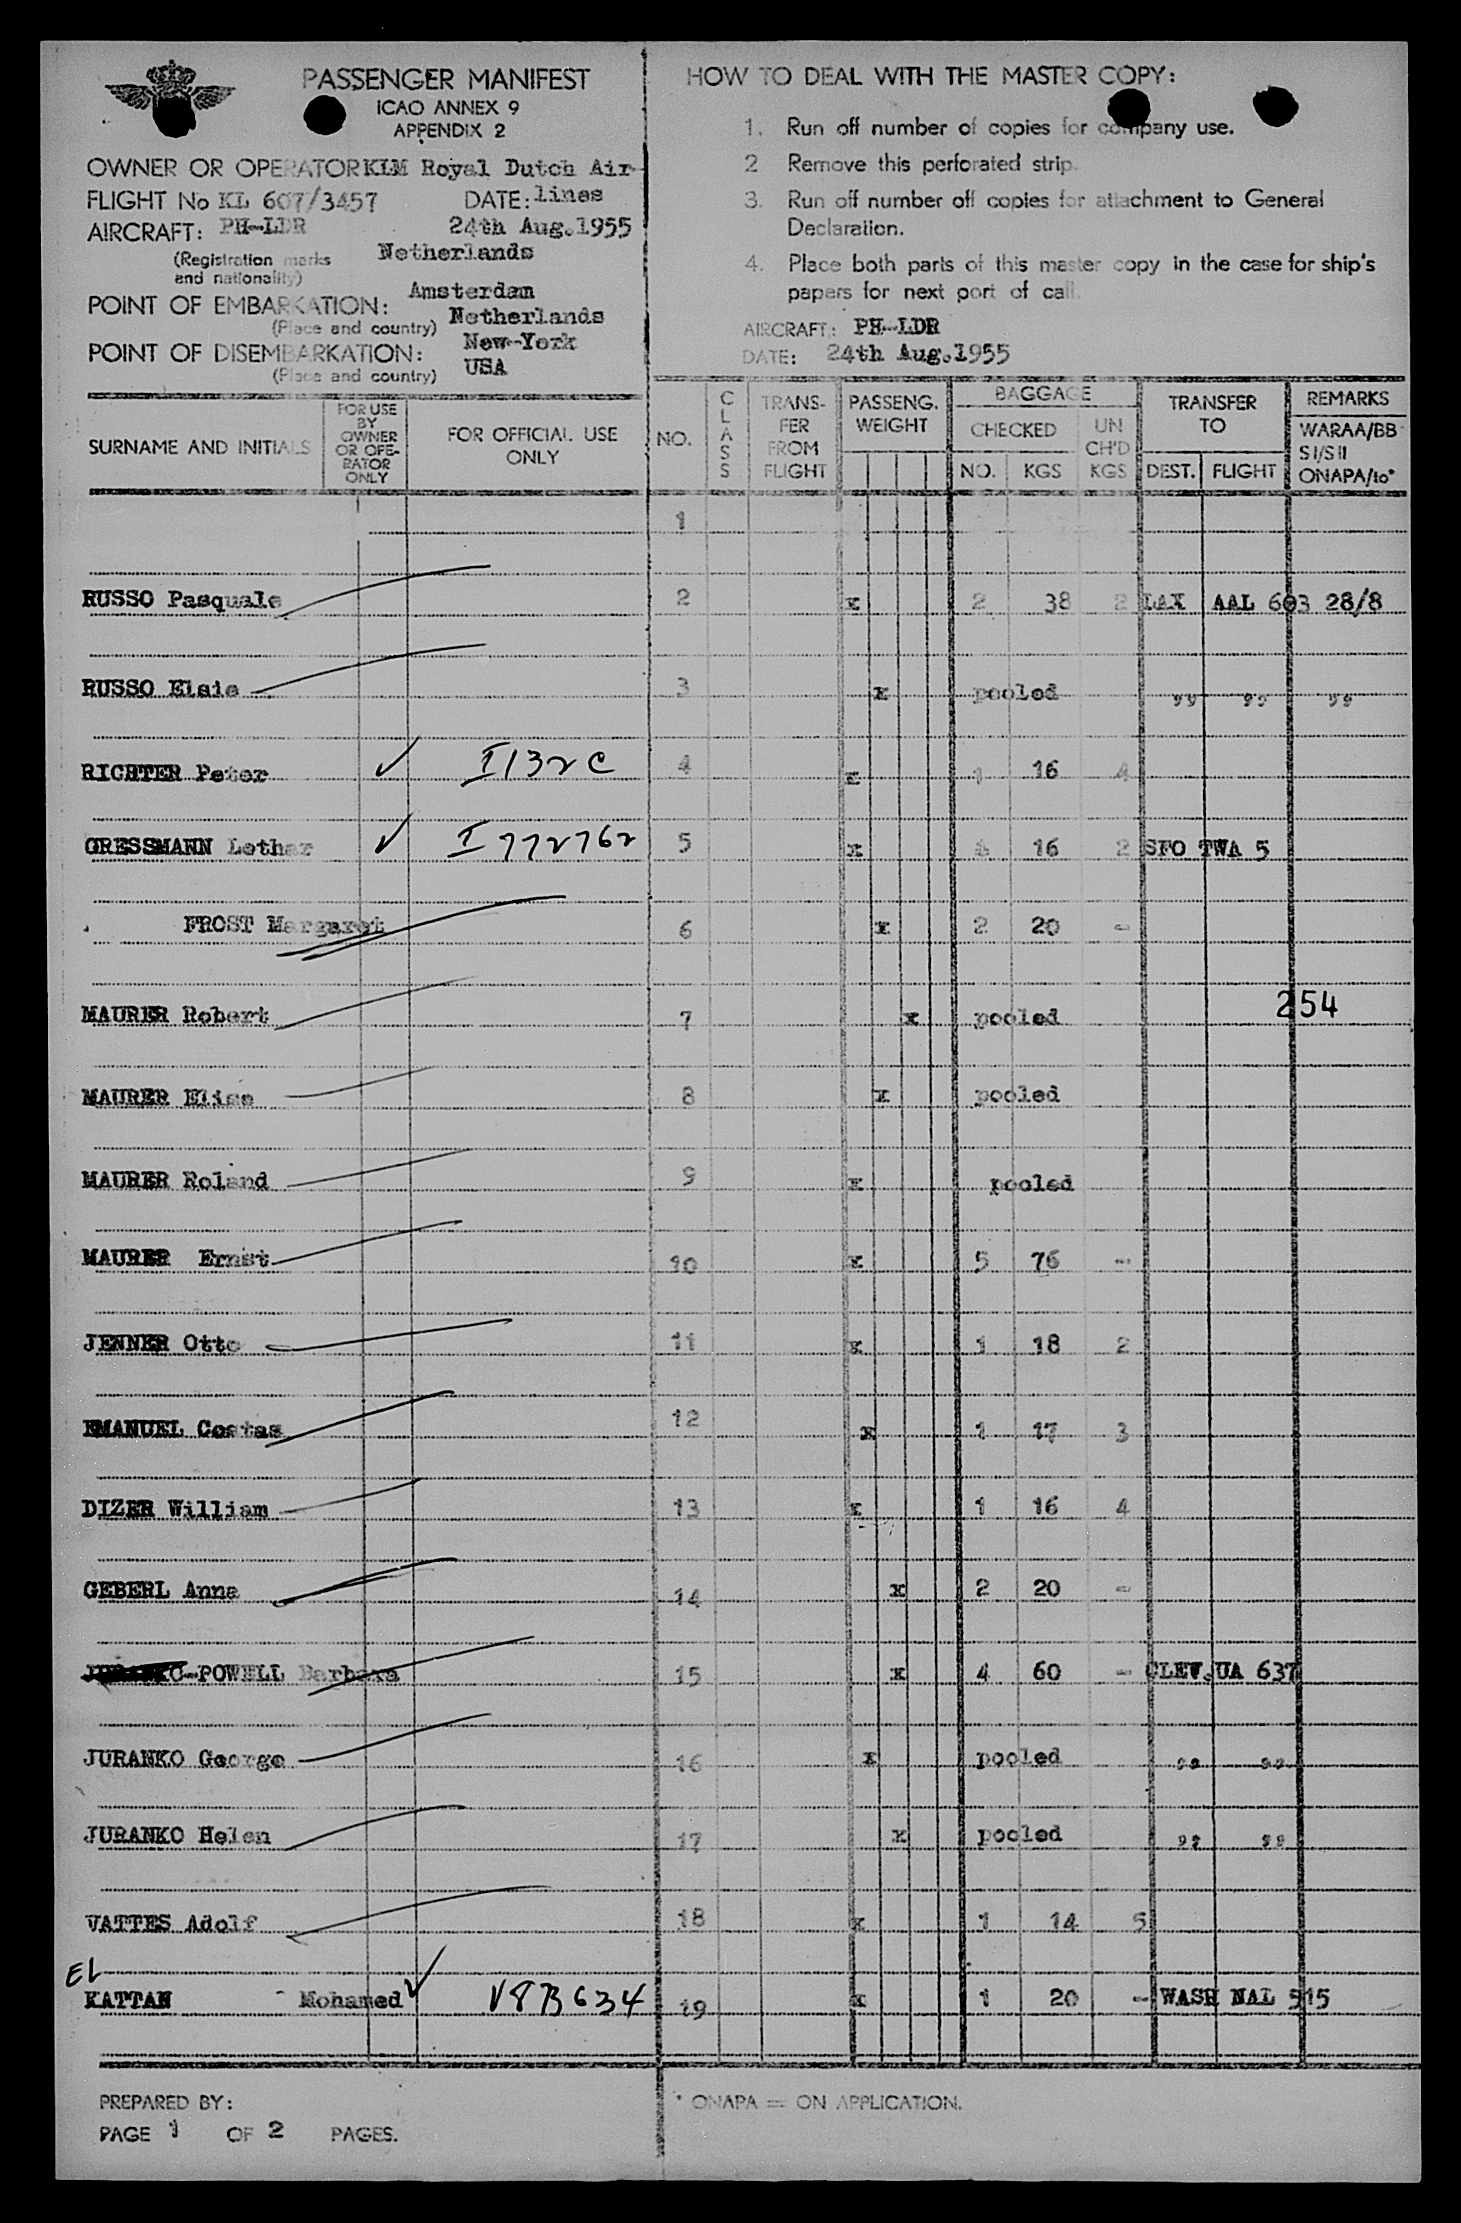 PASSENGER MANIFEST
ICAO ANNEX 9
APPENDIX 2
OWNER OR OPERATOR KLM Royal Dutch Air-
FLIGHT No KL 607/3457 DATE: lines
AIRCRAFT: PH-LDR 24th Aug.1955
(Registration marks and nationality) Netherlands
POINT OF EMBARKATION: Amsterdam
(Place and country) Netherlands
POINT OF DISEMBARKATION: New-York
(Place and country) USA
HOW TO DEAL WITH THE MASTER COPY:
1. Run off number of copies for company use.
2 Remove this perforated strip.
3. Run off number off copies for attachment to General
Declaration.
4. Place both parts of this master copy in the case for ship's
papers for next port of call.
AIRCRAFT: PH-LDR
DATE: 24th Aug.1955
SURNAME AND INITIALS FOR USE BY OWNER OR OPE-RATOR ONLY FOR OFFICIAL USE ONLY NO. CLASS TRANS-FER FROM FLIGHT PASSENG. WEIGHT BAGGAGE CHECKED NO. KGS UN CH'D KGS TRANSFER TO DEST. FLIGHT REMARKS WARAA/BB SI/SII ONAPA/to*
1
RUSSO Pasquale 2 x 2 38 2 LAX AAL 603 28/8
RUSSO Elsie 3 x pooled ,, ,, ,,
RICHTER Peter ✓ I132C 4 x 1 16 4
GRESSMANN Lothar ✓ I772762 5 x 1 16 2 SFO TWA 5
FROST Margaret 6 x 2 20 -
MAURER Robert 7 x pooled 254
MAURER Elise 8 x pooled
MAURER Roland 9 x pooled
MAURER Ernst 10 x 5 76 -
JENNER Otto 11 x 1 18 2
EMANUEL Costas 12 x 1 17 3
DIZER William 13 x 1 16 4
GEBERL Anna 14 x 2 20 -
JURANKO-POWELL Barbara 15 x 4 60 - CLEV.UA 637
JURANKO George 16 x pooled ,, ,,
JURANKO Helen 17 x pooled ,, ,,
VATTES Adolf 18 x 1 14 5
EL
KATTAN Mohamed ✓ 19 x 1 20 - WASH NAL 515
PREPARED BY:
PAGE 1 OF 2 PAGES.
* ONAPA = ON APPLICATION.